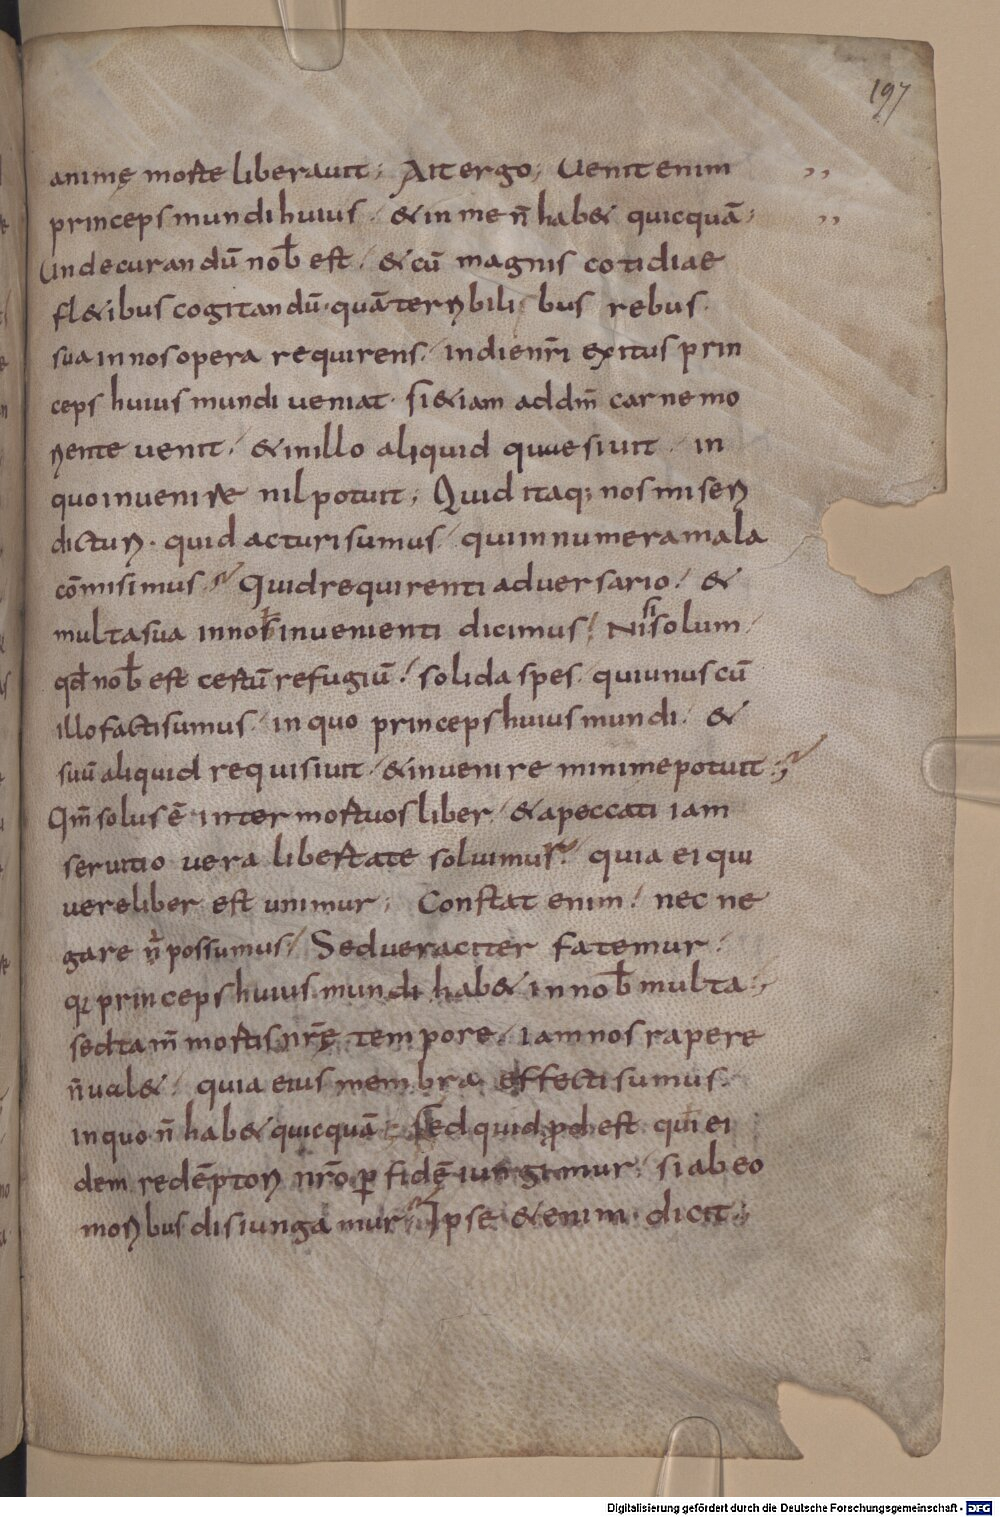 197
animę morte liberauit; Ait ergo; Uenit enim
princeps mundi huius. & in me n̄ hab& quicquā;
Unde curandū nob̄ est. & cū magnis cotidiae
fl&ibus cogitandū. quā terribilibus rebus.
sua in nos opera requirens. in die nr̄i exitus prin
ceps huius mundi ueniat. si &iam ad dm̄ carne mo
riente uenit. & in illo aliquid quaesiuit. in
quo inuenire nil potuit; Quid itaq; nos miseri
dicturi. quid acturi sumus. qui innumera mala
cōmisimus. Quid requirenti aduersario. &
multa sua in nob̄ inuenienti dicimus. Nisi solum.
qd̄ nob̄ est certū refugiū. solida spes. qui unus cū
illo facti sumus. in quo princeps huius mundi. &
suū aliquid requisiuit. & inuenire minime potuit;
Qm̄ solus ē inter mortuos liber. & a peccati iam
seruitio uera libertate soluimur. quia ei qui
uere liber est unimur; Constat enim. nec ne
gare n̄ possumus. Sed ueraciter fatemur.
q; princeps huius mundi hab& in nob̄ multa;
sed tam̄ mortis nr̄ę tempore. iam nos rapere
n̄ ual&. quia eius membra effecti sumus.
in quo n̄ hab& quicquā; Sed quid ꝓdest. qđ ei
dem redēptori nr̄o ꝑ fidē iungimur. si ab eo
moribus disiungamur. Ipse &enim dicit;
Digitalisierung gefördert durch die Deutsche Forschungsgemeinschaft - DFG